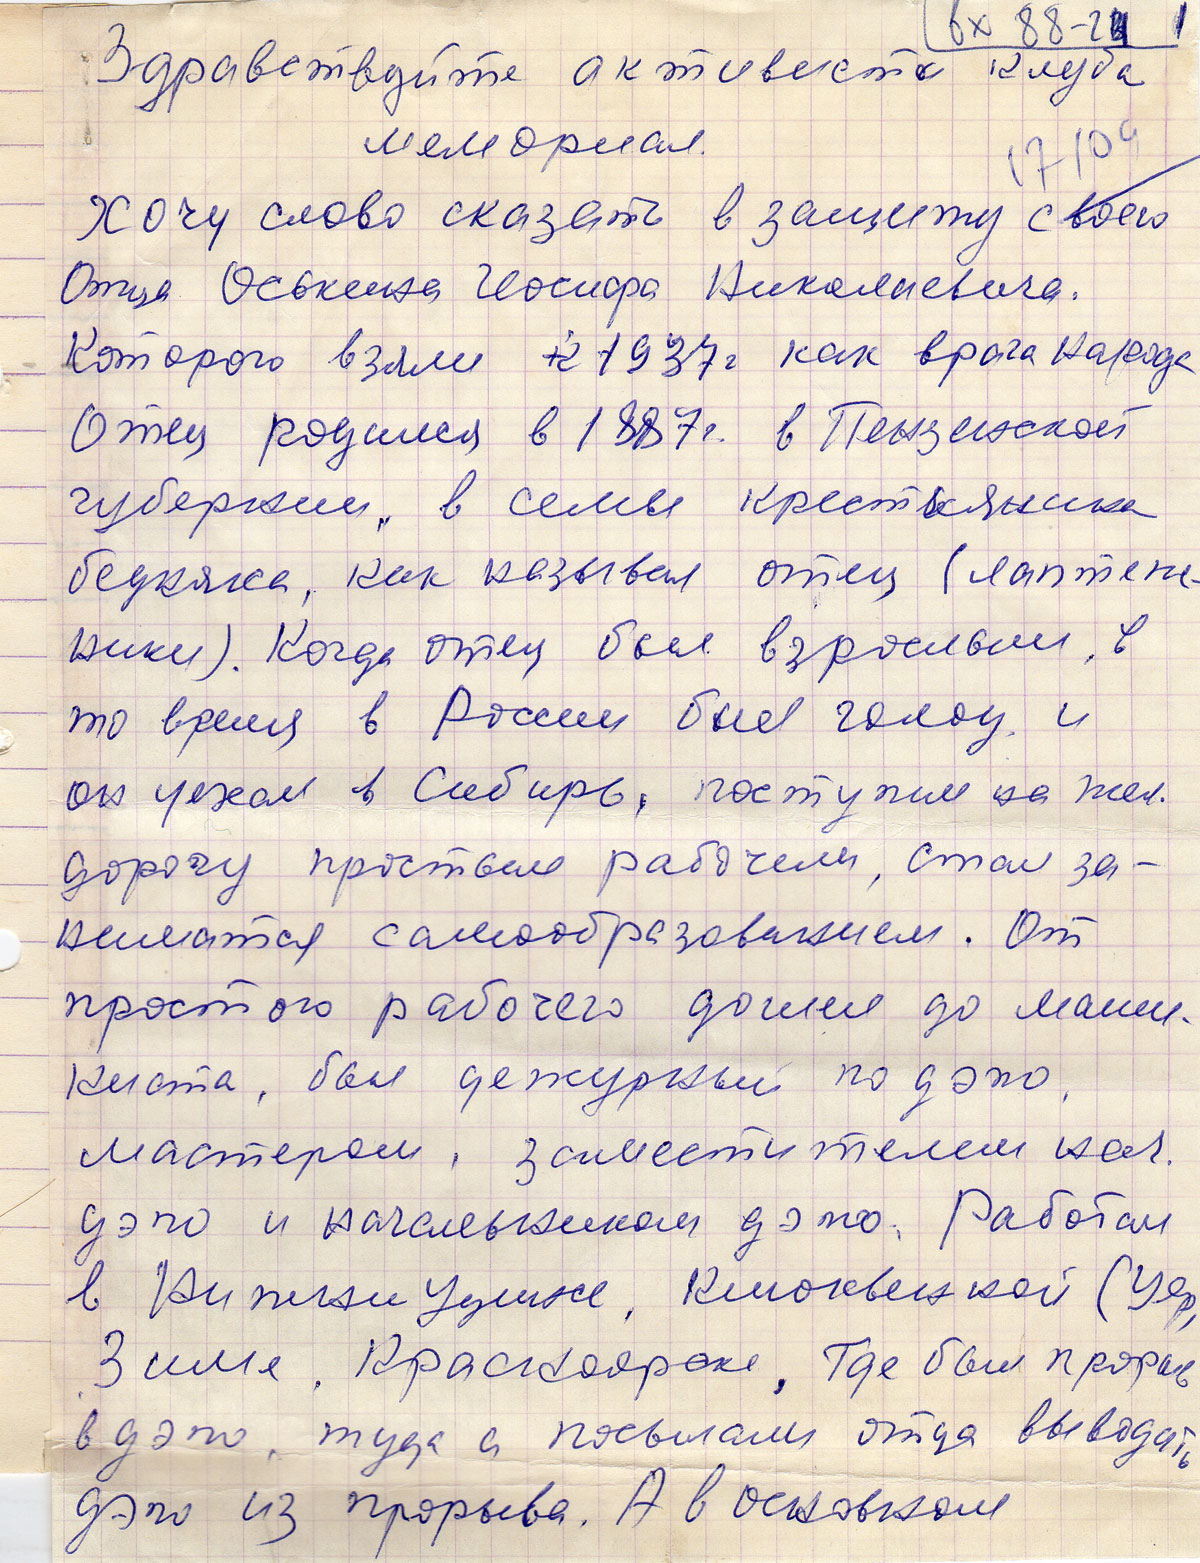 вх 88-24 1
Здравствуйте активисты клуба
мемориал.
17/09
Хочу слово сказать в защиту своего
Отца Оськина Иосифа Николаевича.
Которого взяли в 1937г как врага народа
Отец родился в 1887г. в Пензенской
губернии, в семьи крестьянина
бедняка, как называл отец (лаптеж-
ники). Когда отец был взрослым, в
то время в России был голод, и
он уехал в Сибирь, поступил на жел.
дорогу простым рабочем, стал за-
ниматся самообразованием. От
простого рабочего дошел до маши-
ниста, был дежурный по дэпо,
мастером, заместителем нач.
дэпо и начальником дэпо. Работал
в Нижни Удинске, Клюквенной (Уяр,
Зиме, Красноярске, Где был прорыв
в дэпо, туда и посылали отца выводать
дэпо из прорыва. А в основном